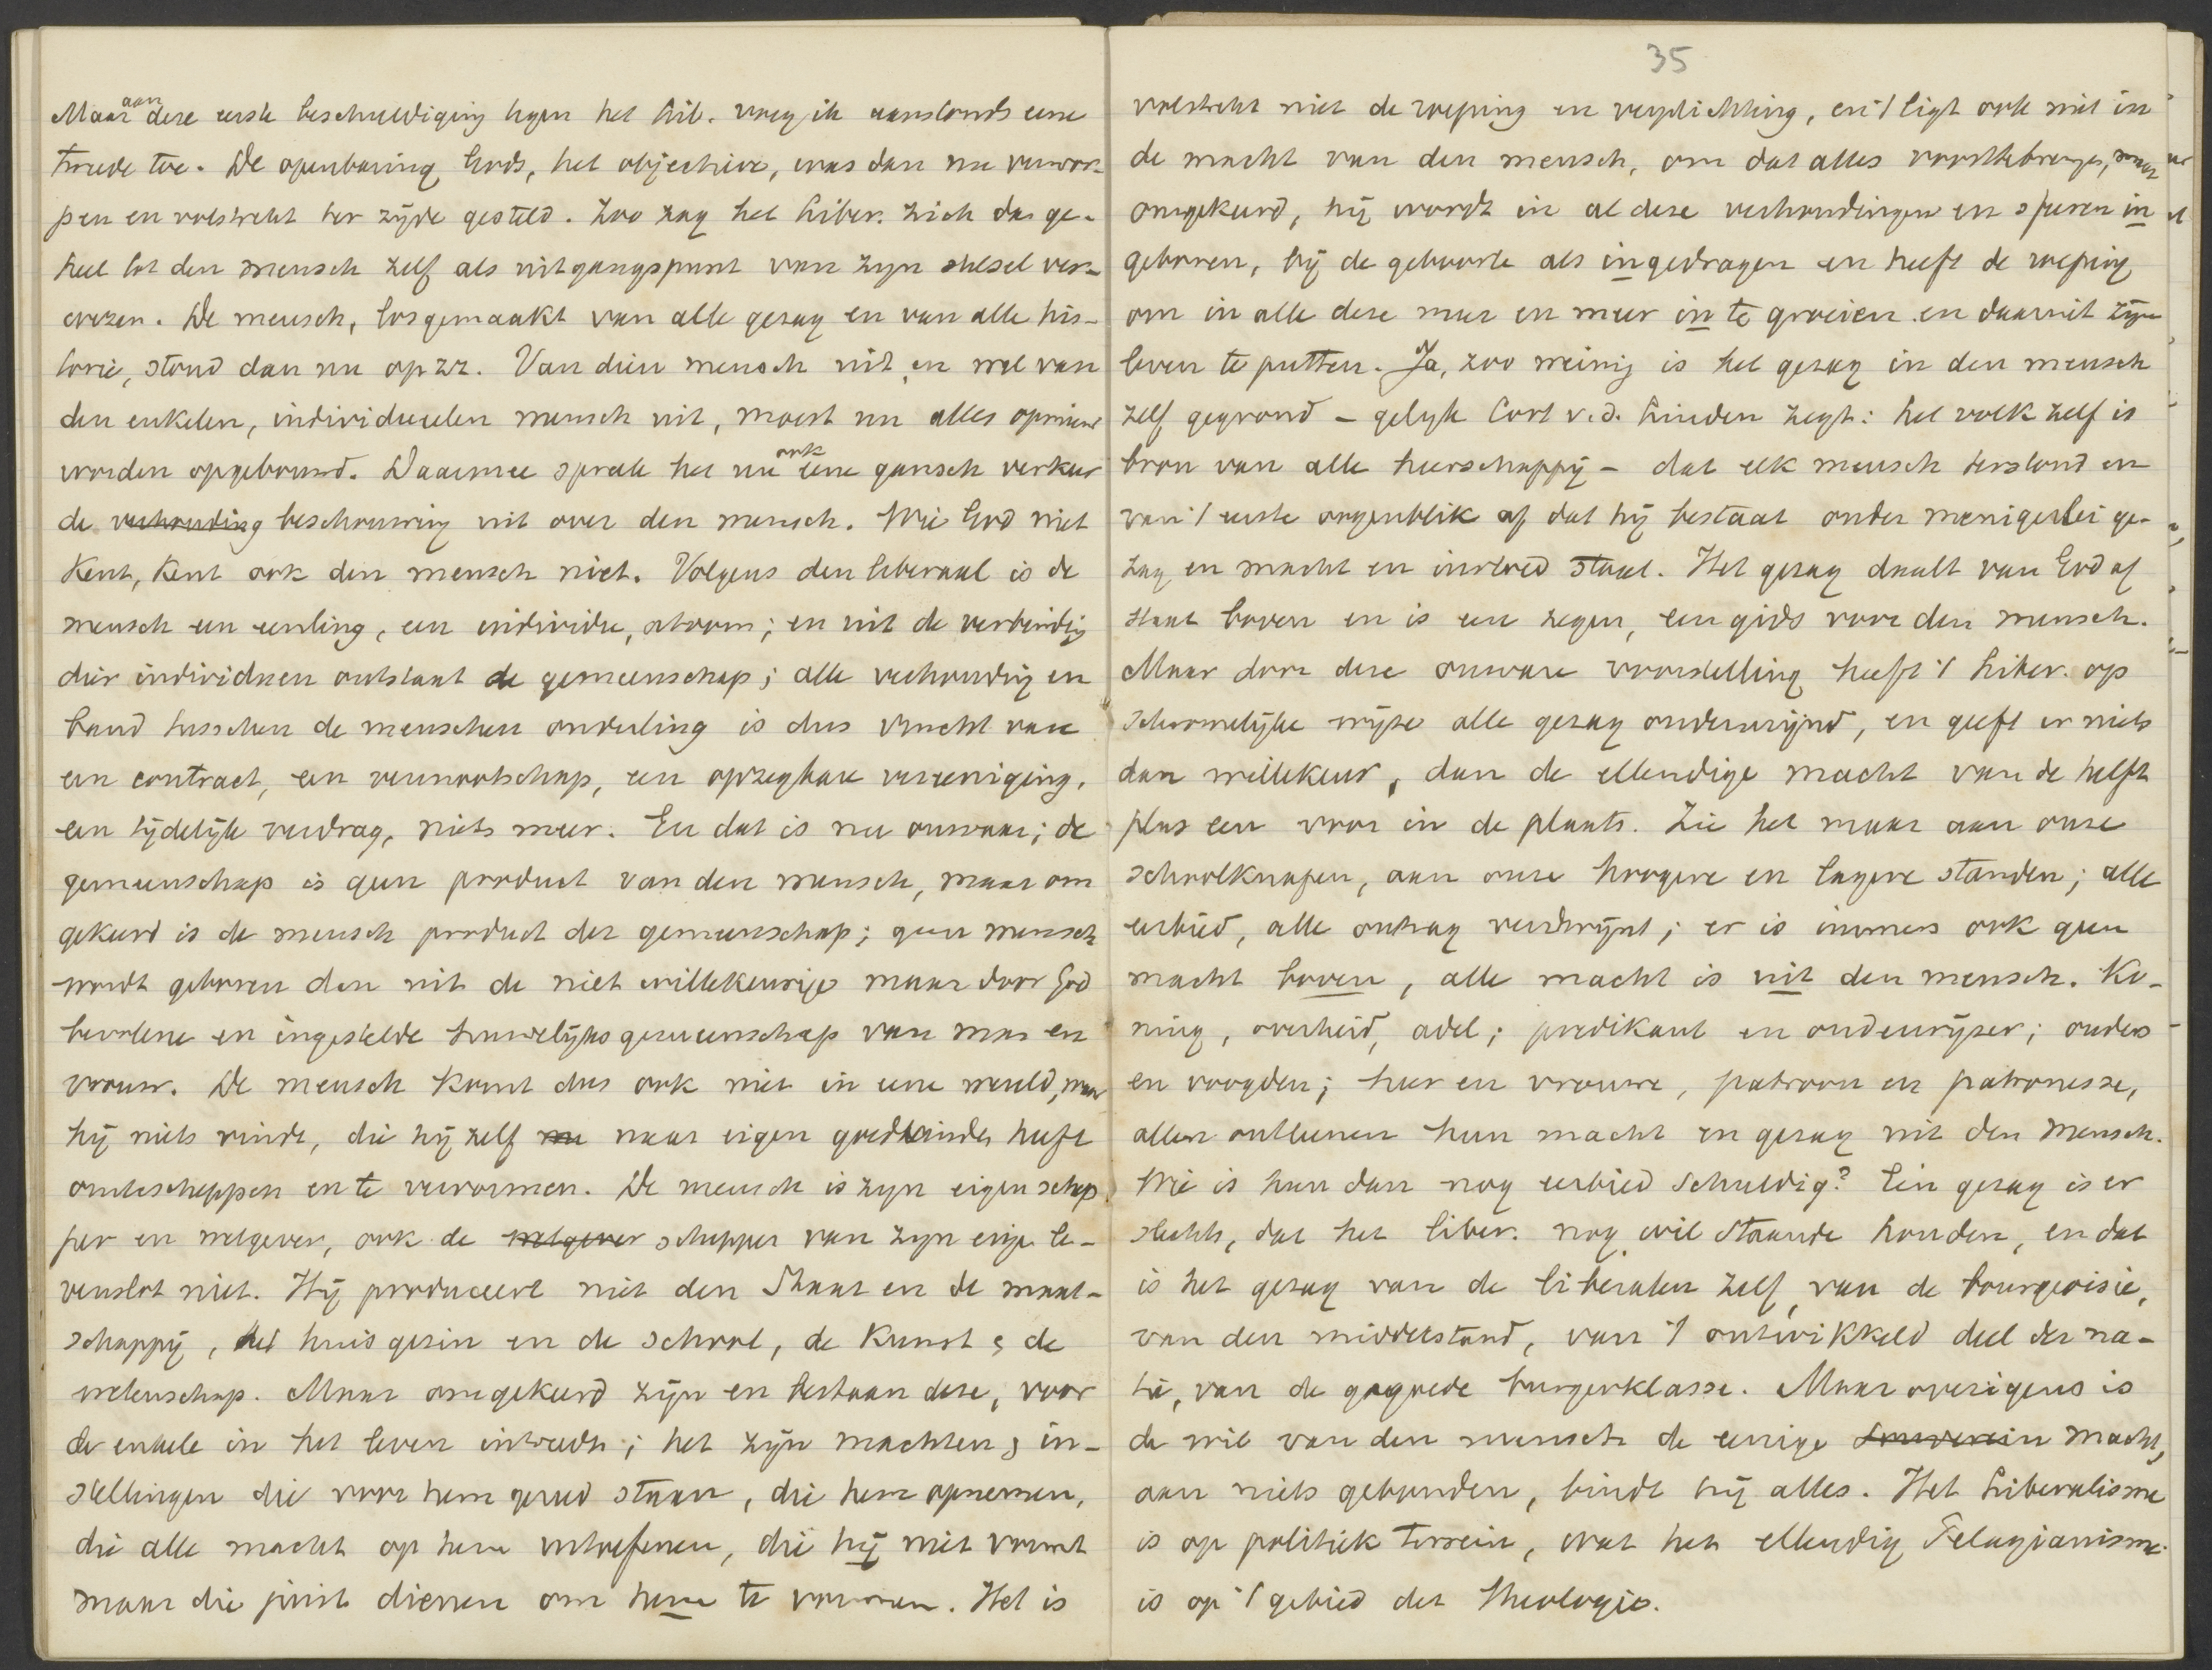 Maar aan deze eerste beschuldiging tegen het Lib. voeg ik aanstonds eene
tweede toe. De openbaring Gods, het objectieve, was dan nu verwor-
pen en volstrekt ter zijde gesteld. Zoo zag het Liber. zich dus ge-
heel tot den mensch zelf als uitgangspunt van zyn stelsel ver-
wezen. De mensch, losgemaakt van alle gezag en van alle his-
torie, stond dan nu op zz. Van dien mensch uit, en wel van
den enkelen, individueelen mensch uit, moest nu alles opnieuw
worden opgebouwd. Daarmee sprak het nu ook eene gansch verkeer
de verhouding beschouwing uit over den mensch. Wie God niet
kent, kent ook den mensch niet. Volgens den liberaal is de
mensch een eenling, een individu, atoom; en uit de verbindig
dier individuen ontstaat de gemeenschap; alle verhoudig en
band tusschen de menschen onderling is dus vrucht van
een contract, een vennootschap, een opzegbare vereeniging,
een tijdelijk verdrag, niets meer. En dat is nu onwaar; de
gemeenschap is geen product van den mensch, maar om
gekeerd is de mensch product der gemeenschap; geen mensch
wordt geboren dan uit de niet willekeurige maar door God
bevolene en ingestelde huwelijksgemeenschap van man en
vrouw. De mensch komt dus ook niet in eene wereld, waar
hij niets vindt, die hij zelf nu naar eigen goedvinden heeft
omtescheppen en te vervormen. De mensch is zyn eigen schep
per en wetgever, ook de wetgever schepper van zyn eige le-
venslot niet. Hij produceert niet den Staat en de maat-
schappij, het huisgezin en de school, de kunst & de
wetenschap. Maar omgekeerd zijn en bestaan deze, voor
de enkele in het leven intreedt; het zijn machten & in-
stellingen die voor hem gereed staan, die hem opnemen,
die alle macht op hem uitoefenen, die hij niet vormt
maar die juist dienen om hem te vormen. Het is
35
volstrekt niet de roeping en verplichting, en 't ligt ook niet in
de macht van den mensch, om dat alles voorttebrengen, maar
omgekeerd, hij wordt in al deze verhoudingen en sferen in
geboren, bij de geboorte als ingedragen en heeft de roeping
om in alle deze meer en meer in te groeien en daaruit zijn
leven te putten. Ja, zoo weinig is het gezag in den mensch
zelf gegrond – gelijk Cort v.d. Linden zegt: het volk zelf is
bron van alle heerschappij – dat elk mensch terstond en
van 't eerste oogenblik af dat hij bestaat onder menigerlei ge-
zag en macht en invloed staat. Het gezag daalt van God af
staat boven en is een zegen, een gids voor den mensch.
Maar door deze onware voorstelling heeft 't Liber. op
schromelijke wijze alle gezag ondermijnd, en geeft er niets
dan willekeur, dan de ellendige macht van de helft
plus een voor in de plaats. Zie het maar aan onze
schoolknapen, aan onze hoogere en lagere standen; alle
eerbied, alle ontzag verdwijnt; er is immers ook geen
macht boven, alle macht is uit den mensch. Ko-
ning, overheid, adel; predikant en onderwijzer; ouders
en voogden; heer en vrouwe, patroon en patronesse,
allen ontleenen hun macht en gezag uit den mensch.
Wie is hun dan nog eerbied schuldig? Eén gezag is er
slechts, dat het liber. nog wil staande houden, en dat
is het gezag van de liberalen zelf, van de bourgeoisie,
van den middelstand, van 't ontwikkeld deel der na-
tie, van de gegoede burgerklasse. Maar overigens is
de wil van den mensch de eenige souverein macht,
aan niets gebonden, bindt hij alles. Het Liberalisme
is op politiek terrein, wat het ellendig Pelagianisme
is op 't gebied der theologie.